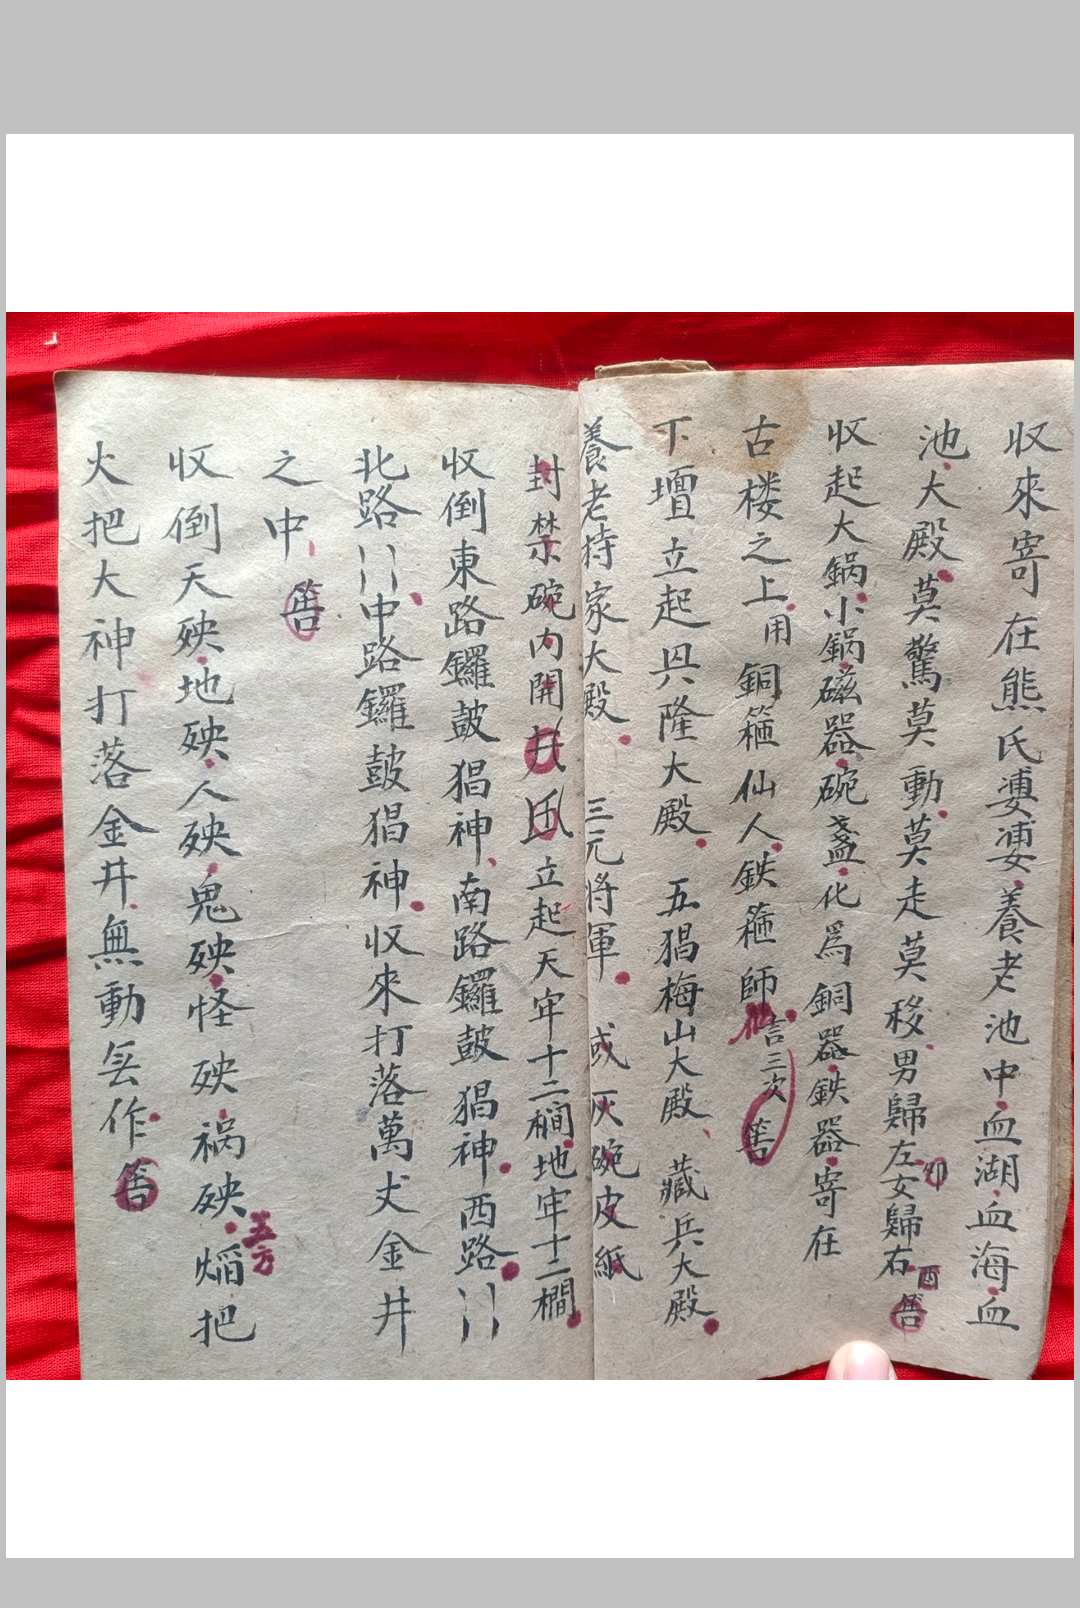 收來寄在熊氏婆婆養老池中血湖血海血
池大殿莫驚莫動莫走莫移男歸左卯女歸右酉筶
收起大鍋小鍋磁器碗盞化為銅器鉄器寄在
古楼之上用銅箍仙人鉄箍師言三次筶
下壇立起興隆大殿五猖梅山大殿藏兵大殿
養老持家大殿三元將軍或灰碗皮紙
封禁碗內開立起天牢十二橺地牢十二橺
收倒東路鑼鼓猖神南路鑼鼓猖神西路〻〻
北路〻〻中路鑼鼓猖神收來打落萬丈金井
之中筶
收倒天殃地殃人殃鬼殃怪殃禍殃五方焰把
火把大神打落金井無動無作筶